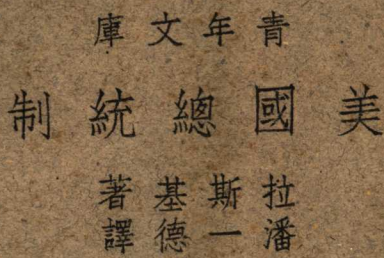 青年文庫
美國總統制
拉斯基著
潘一德譯